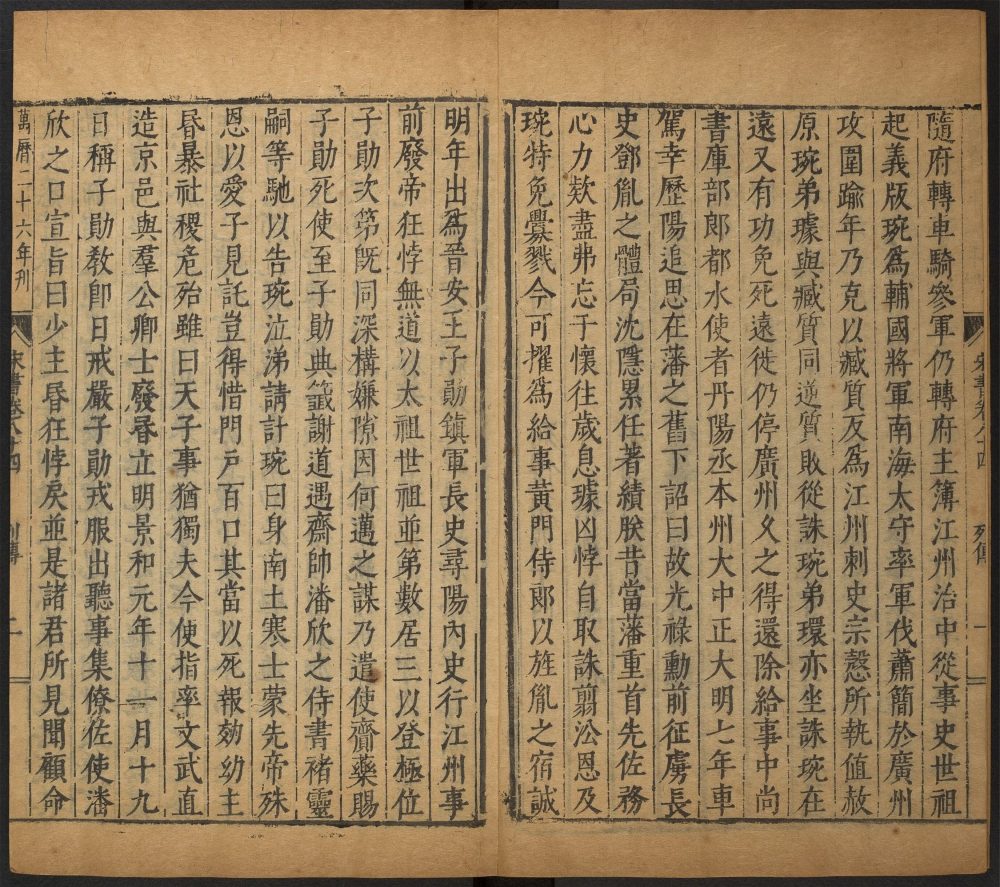 隨府轉車騎參軍仍轉府主簿江州治中從事史世祖
起義版琬爲輔國將軍南海太守率軍伐蕭簡於廣州
攻圍踰年乃克以臧質反爲江州刺史宗慤所執值赦
原琬弟璩與臧質同逆質敗從誅琬弟環亦坐誅琬在
遠又有功免死遠徙仍停廣州久之得還除給事中尚
書庫部郎都水使者丹陽丞本州大中正大明七年車
駕幸歷陽追思在藩之舊下詔曰故光祿勳前征虜長
史鄧胤之體局沈隱累任著績朕昔當藩重首先佐務
心力款盡弗忘于懷往歲息璩凶悖自取誅翦沿恩及
琬特免釁戮今可擢爲給事黃門侍郎以旌胤之宿誠
宋書卷八十四 列傳 一
明年出爲晉安王子勛鎮軍長史尋陽內史行江州事
前廢帝狂悖無道以太祖世祖並第數居三以登極位
子勛次第既同深構嫌隙因何邁之謀乃遣使齎藥賜
子勛死使至子勛典籤謝道遇齋帥潘欣之侍書褚靈
嗣等馳以告琬泣涕請計琬曰身南土寒士蒙先帝殊
恩以愛子見託豈得惜門戶百口其當以死報効幼主
昏暴社稷危殆雖曰天子事猶獨夫今使指率文武直
造京邑與羣公卿士廢昏立明景和元年十一月十九
日稱子勛教卽日戒嚴子勛戎服出聽事集僚佐使潘
欣之口宣旨曰少主昏狂悖戾並是諸君所見聞顧命
萬曆二十六年刊
宋書卷八十四 列傳 二